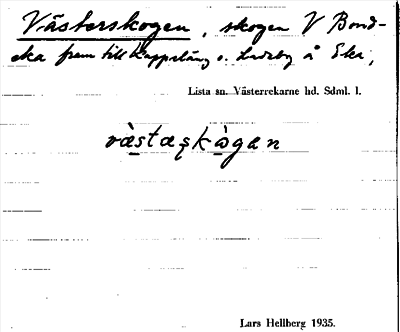 Västerskogen, skogen V Bond-
eka fram till Kappstäng o. Lundby å Eka,
Lista sn. Västerrekarne hd. Sdml. l.
væ̀stæşkɷ̀gan
Lars Hellberg 1935.